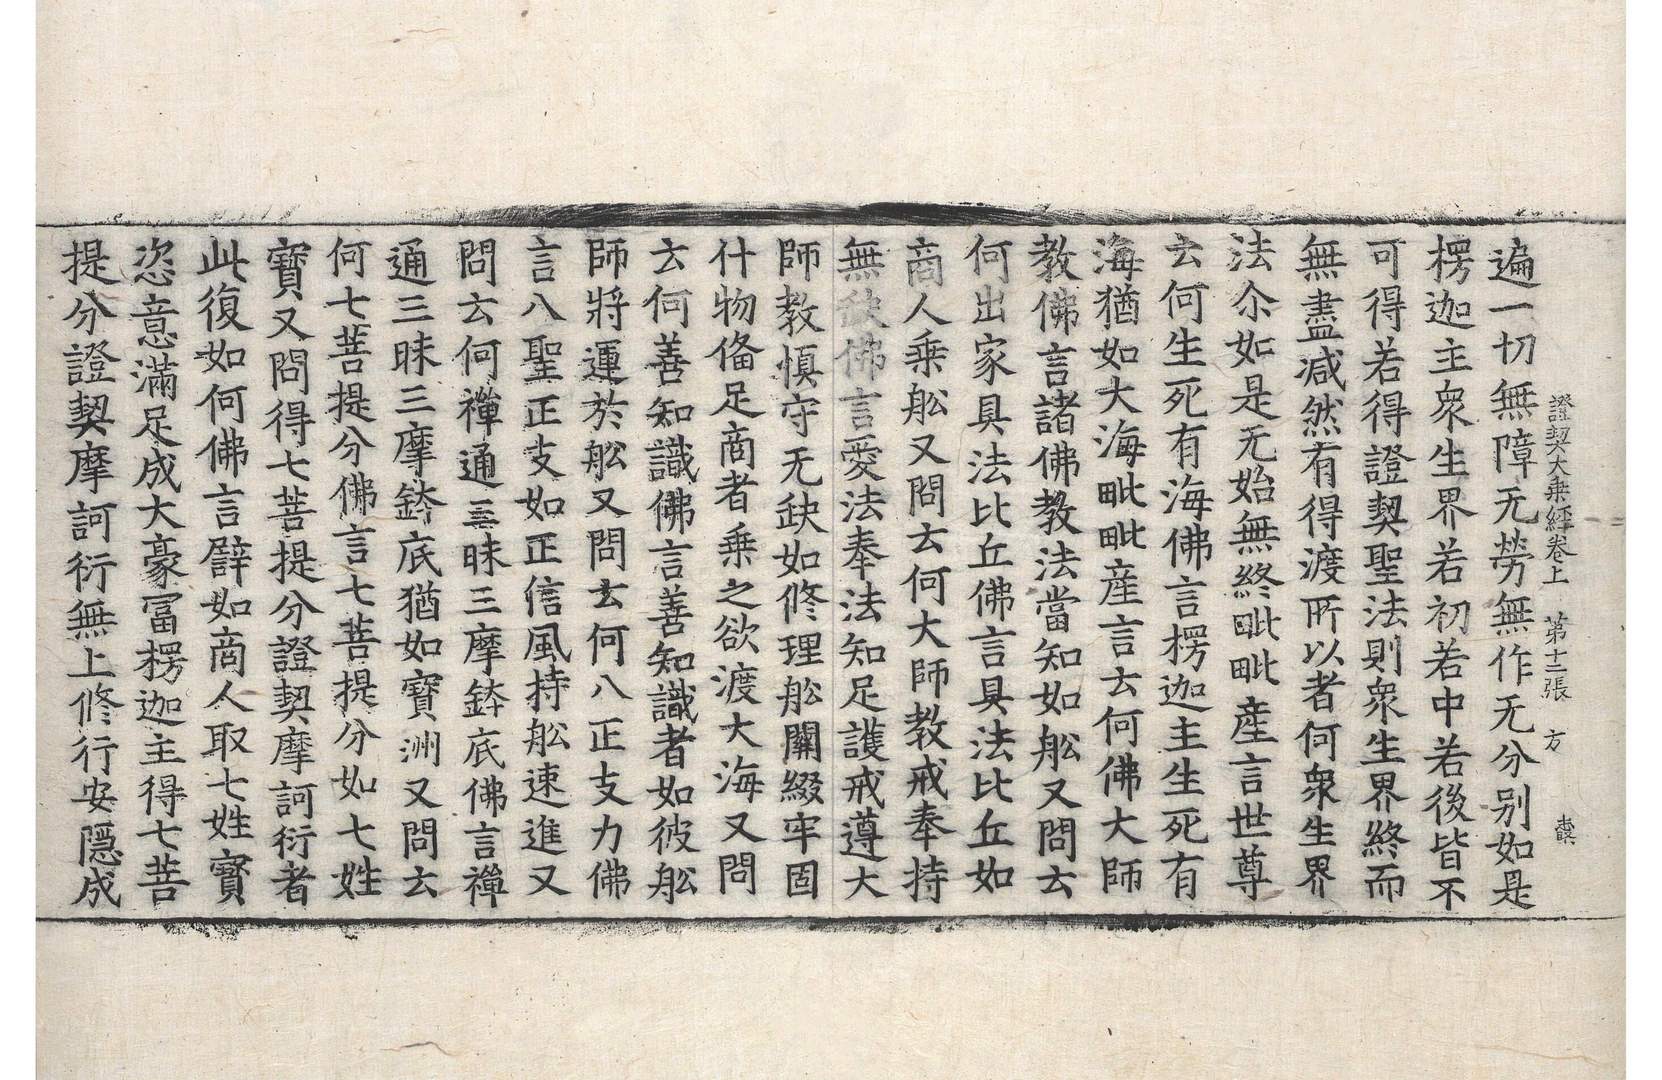 證契大乘經卷上 第十二張 方
遍一切無障无勞無作无分别如是
楞迦主衆生界若初若中若後皆不
可得若得證契聖法則衆生界終而
無盡減然有得渡所以者何衆生界
法尒如是无始無終毗毗產言世尊
云何生死有海佛言楞迦主生死有
海猶如大海毗毗產言云何佛大師
教佛言諸佛教法當知如舩又問云
何出家具法比丘佛言具法比丘如
商人乗舩又問云何大師教戒奉持
無缺佛言愛法奉法知足護戒遵大
師教慎守无缺如修理舩關綴牢固
什物俻足商者乗之欲渡大海又問
云何善知識佛言善知識者如彼舩
師將運於舩又問玄何八正支力佛
言八聖正支如正信風持舩速進又
問云何禪通三昧三摩鉢底佛言禪
通三昧三摩鉢底猶如寶洲又問云
何七菩提分佛言七菩提分如七姓
寶又問得七菩提分證契摩訶衍者
此復如何佛言譬如商人取七姓寶
恣意滿足成大豪冨楞迦主得七菩
提分證契摩訶衍無上修行安隱成